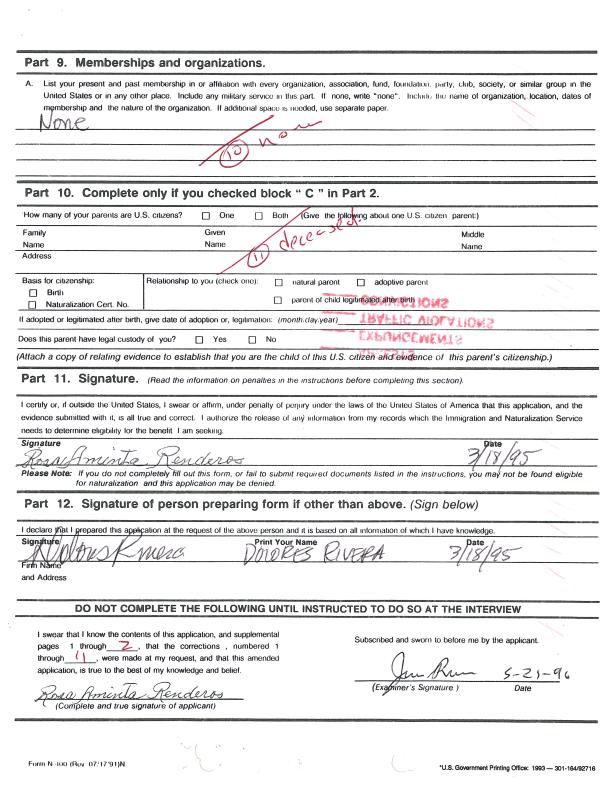 Part 9. Memberships and organizations.
A. List your present and past membership in or affiliation with every organization, association, fund, foundation, party, club, society, or similar group in the
United States or in any other place. Include any military service in this part. If none, write "none". Include the name of organization, location, dates of
membership and the nature of the organization. If additional space is needed, use separate paper.
None
10 none
Part 10. Complete only if you checked block " C " in Part 2.
How many of your parents are U.S. citizens? One Both (Give the following about one U.S. citizen parent:)
Family Name Given Name Middle Name
11 deceased
Address
Basis for citizenship: Relationship to you (check one): natural parent adoptive parent
Birth
Naturalization Cert. No. parent of child legitimated after birth
CONVICTIONS
If adopted or legitimated after birth, give date of adoption or, legitimation: (month,day,year)
TRAFFIC VIOLATIONS
Does this parent have legal custody of you? Yes No
EXPUNGEMENTS
(Attach a copy of relating evidence to establish that you are the child of this U.S. citizen and evidence of this parent's citizenship.)
ARRESTS
Part 11. Signature. (Read the information on penalties in the instructions before completing this section).
I certify or, if outside the United States, I swear or affirm, under penalty of perjury under the laws of the United States of America that this application, and the
evidence submitted with it, is all true and correct. I authorize the release of any information from my records which the Immigration and Naturalization Service
needs to determine eligibility for the benefit I am seeking.
Signature Date
Rosa Aminta Renderos 3/18/95
Please Note: If you do not completely fill out this form, or fail to submit required documents listed in the instructions, you may not be found eligible
for naturalization and this application may be denied.
Part 12. Signature of person preparing form if other than above. (Sign below)
I declare that I prepared this application at the request of the above person and it is based on all information of which I have knowledge.
Signature Print Your Name Date
DOLORES RIVERA 3/18/95
Firm Name
and Address
DO NOT COMPLETE THE FOLLOWING UNTIL INSTRUCTED TO DO SO AT THE INTERVIEW
I swear that I know the contents of this application, and supplemental
pages 1 through 2, that the corrections, numbered 1
through 11, were made at my request, and that this amended
application, is true to the best of my knowledge and belief.
Rosa Aminta Renderos
(Complete and true signature of applicant)
Subscribed and sworn to before me by the applicant.
5-21-96
(Examiner's Signature ) Date
Form N-400 (Rev. 07/17/91)N
*U.S. Government Printing Office: 1993 — 301-164/92716